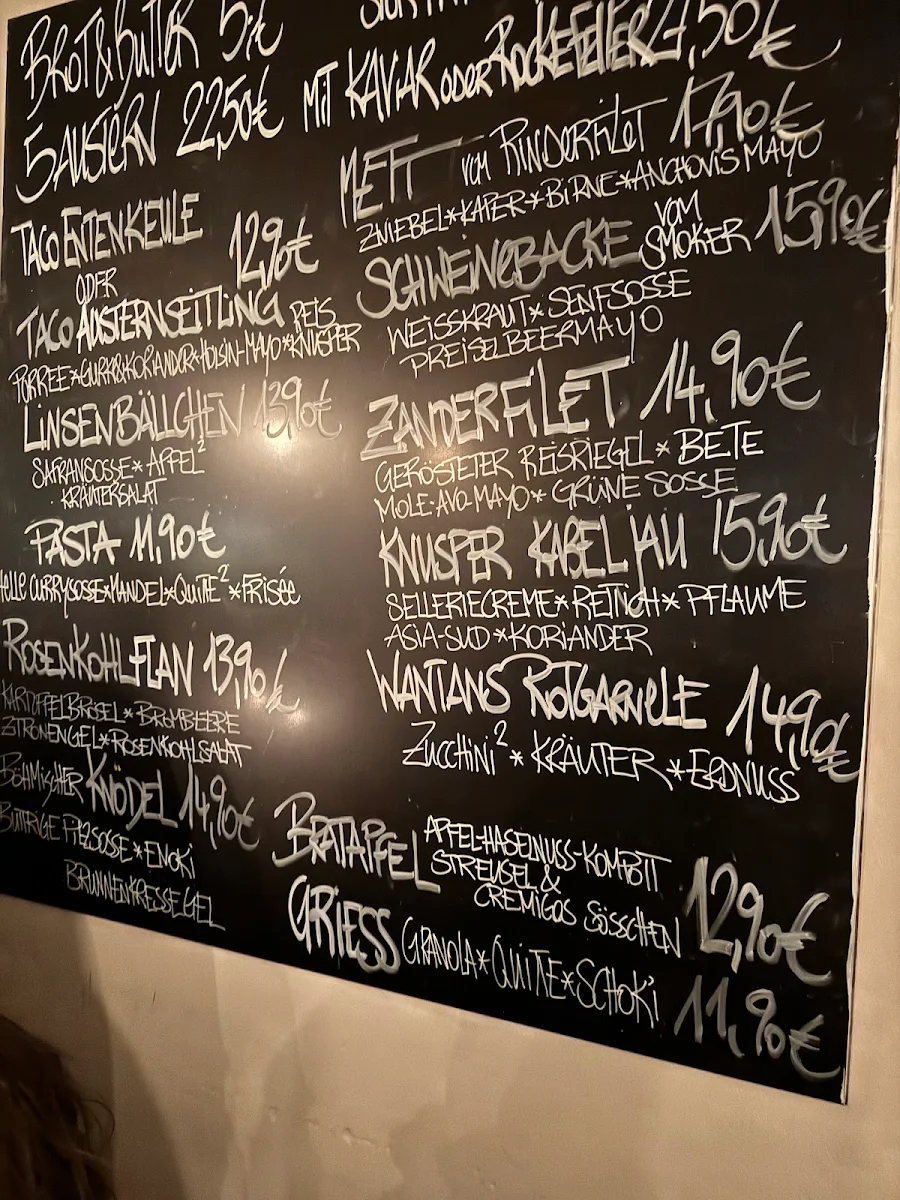 BROT & BUTTER 5,-€
5 AUSTERN 22,50€
MIT KAVIAR ODER ROCKEFELLER 27,50€
TACO ENTENKEULE 12,90€
ODER
TACO AUSTERNSEITLING REIS
PÜRREE*GURKE*KORIANDER*HOISIN-MAYO*KNUSPER
LINSENBÄLLCHEN 13,90€
SAFRANSOSSE*APFEL²
KRÄUTERSALAT
PASTA 11,90€
HELLE CURRYSOSSE*MANDEL*QUITTE²*FRISÉE
ROSENKOHLFLAN 13,90€
KARTOFFELBRÖSEL*BROMBEERE
ZITRONENGEL*ROSENKOHLSALAT
BÖHMISCHER KNÖDEL 14,90€
BUTTRIGE PILZSOSSE*ENOKI
BRUNNENKRESSEGEL
METT VOM RINDERFILET 17,90€
ZWIEBEL*KAPER*BIRNE*ANCHOVIS MAYO
SCHWEINEBACKE VOM SMOKER 15,90€
WEISSKRAUT*SENFSOSSE
PREISELBEERMAYO
ZANDERFILET 14,90€
GERÖSTETER REISRIEGEL*BETE
MOLE-AVO-MAYO*GRÜNE SOSSE
KNUSPER KABELJAU 15,90€
SELLERIECREME*RETTICH*PFLAUME
ASIA-SUD*KORIANDER
WANTANS ROTGARNELE 14,90€
ZUCCHINI²*KRÄUTER*ERDNUSS
BRATAPFEL APFEL-HASELNUSS-KOMPOTT
STREUSEL &
CREMIGOS SÖSSCHEN 12,90€
GRIESS GRANOLA*QUITTE*SCHOKI 11,90€